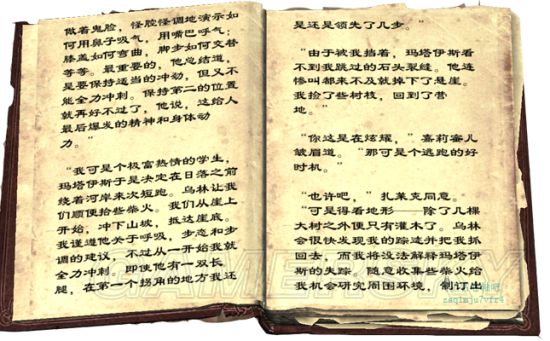 做着鬼脸，怪腔怪调地演示如
何用鼻子吸气，用嘴巴呼气；
膝盖如何弯曲，脚步如何交替
等等。最重要的，他总结道，
是要保持适当的冲动，但又不
能全力冲刺。保持第二的位置
就再好不过了，他说，这给人
最后爆发的精神和身体动
力。”
“我可是个极富热情的学生，
玛塔伊斯于是决定在日落之前
绕着河岸来次短跑。乌林让我
们顺便拾些柴火。我们从崖上
开始，冲下山坡，抵达崖底。
我谨遵他关于呼吸，步态和步
调的建议，不过从一开始我就
全力冲刺。即使他有一双长
腿，在第一个拐角的地方我还
是还是领先了几步。”
“由于被我挡着，玛塔伊斯看
不到我跳过的石头裂缝。他连
惨叫都来不及就掉下了悬崖。
我捡了些树枝，回到了营
地。”
“你这是在炫耀，”嘉莉蜜儿
皱眉道。“那可是个逃跑的好
时机。”
“也许吧，”扎莱克同意。
“可是得看地形——除了几棵
大树之外便只有灌木了。乌林
会很快发现我的踪迹并把我抓
回去，而我将没法解释玛塔伊
斯的失踪。随意收集些柴火给
我机会研究周围环境，制订出
GAMERSKY